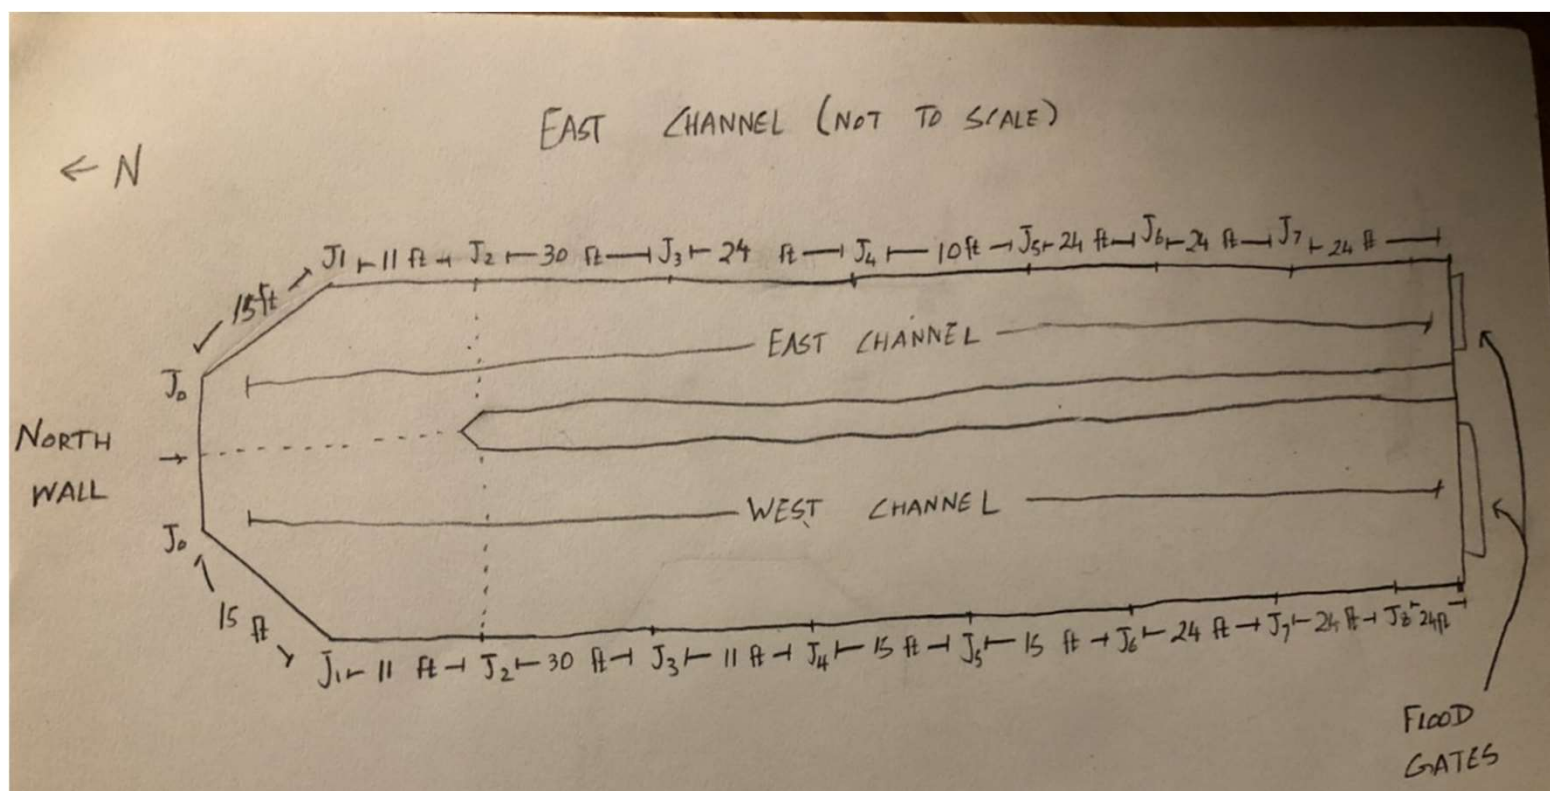 EAST CHANNEL (NOT TO SCALE)
← N
J1 11 ft J2 30 ft J3 24 ft J4 10 ft J5 24 ft J6 24 ft J7 24 ft
15 ft
J0
EAST CHANNEL
NORTH
WALL
WEST CHANNEL
J0
15 ft
J1 11 ft J2 30 ft J3 11 ft J4 15 ft J5 15 ft J6 24 ft J7 24 ft J8 24 ft
FLOOD
GATES